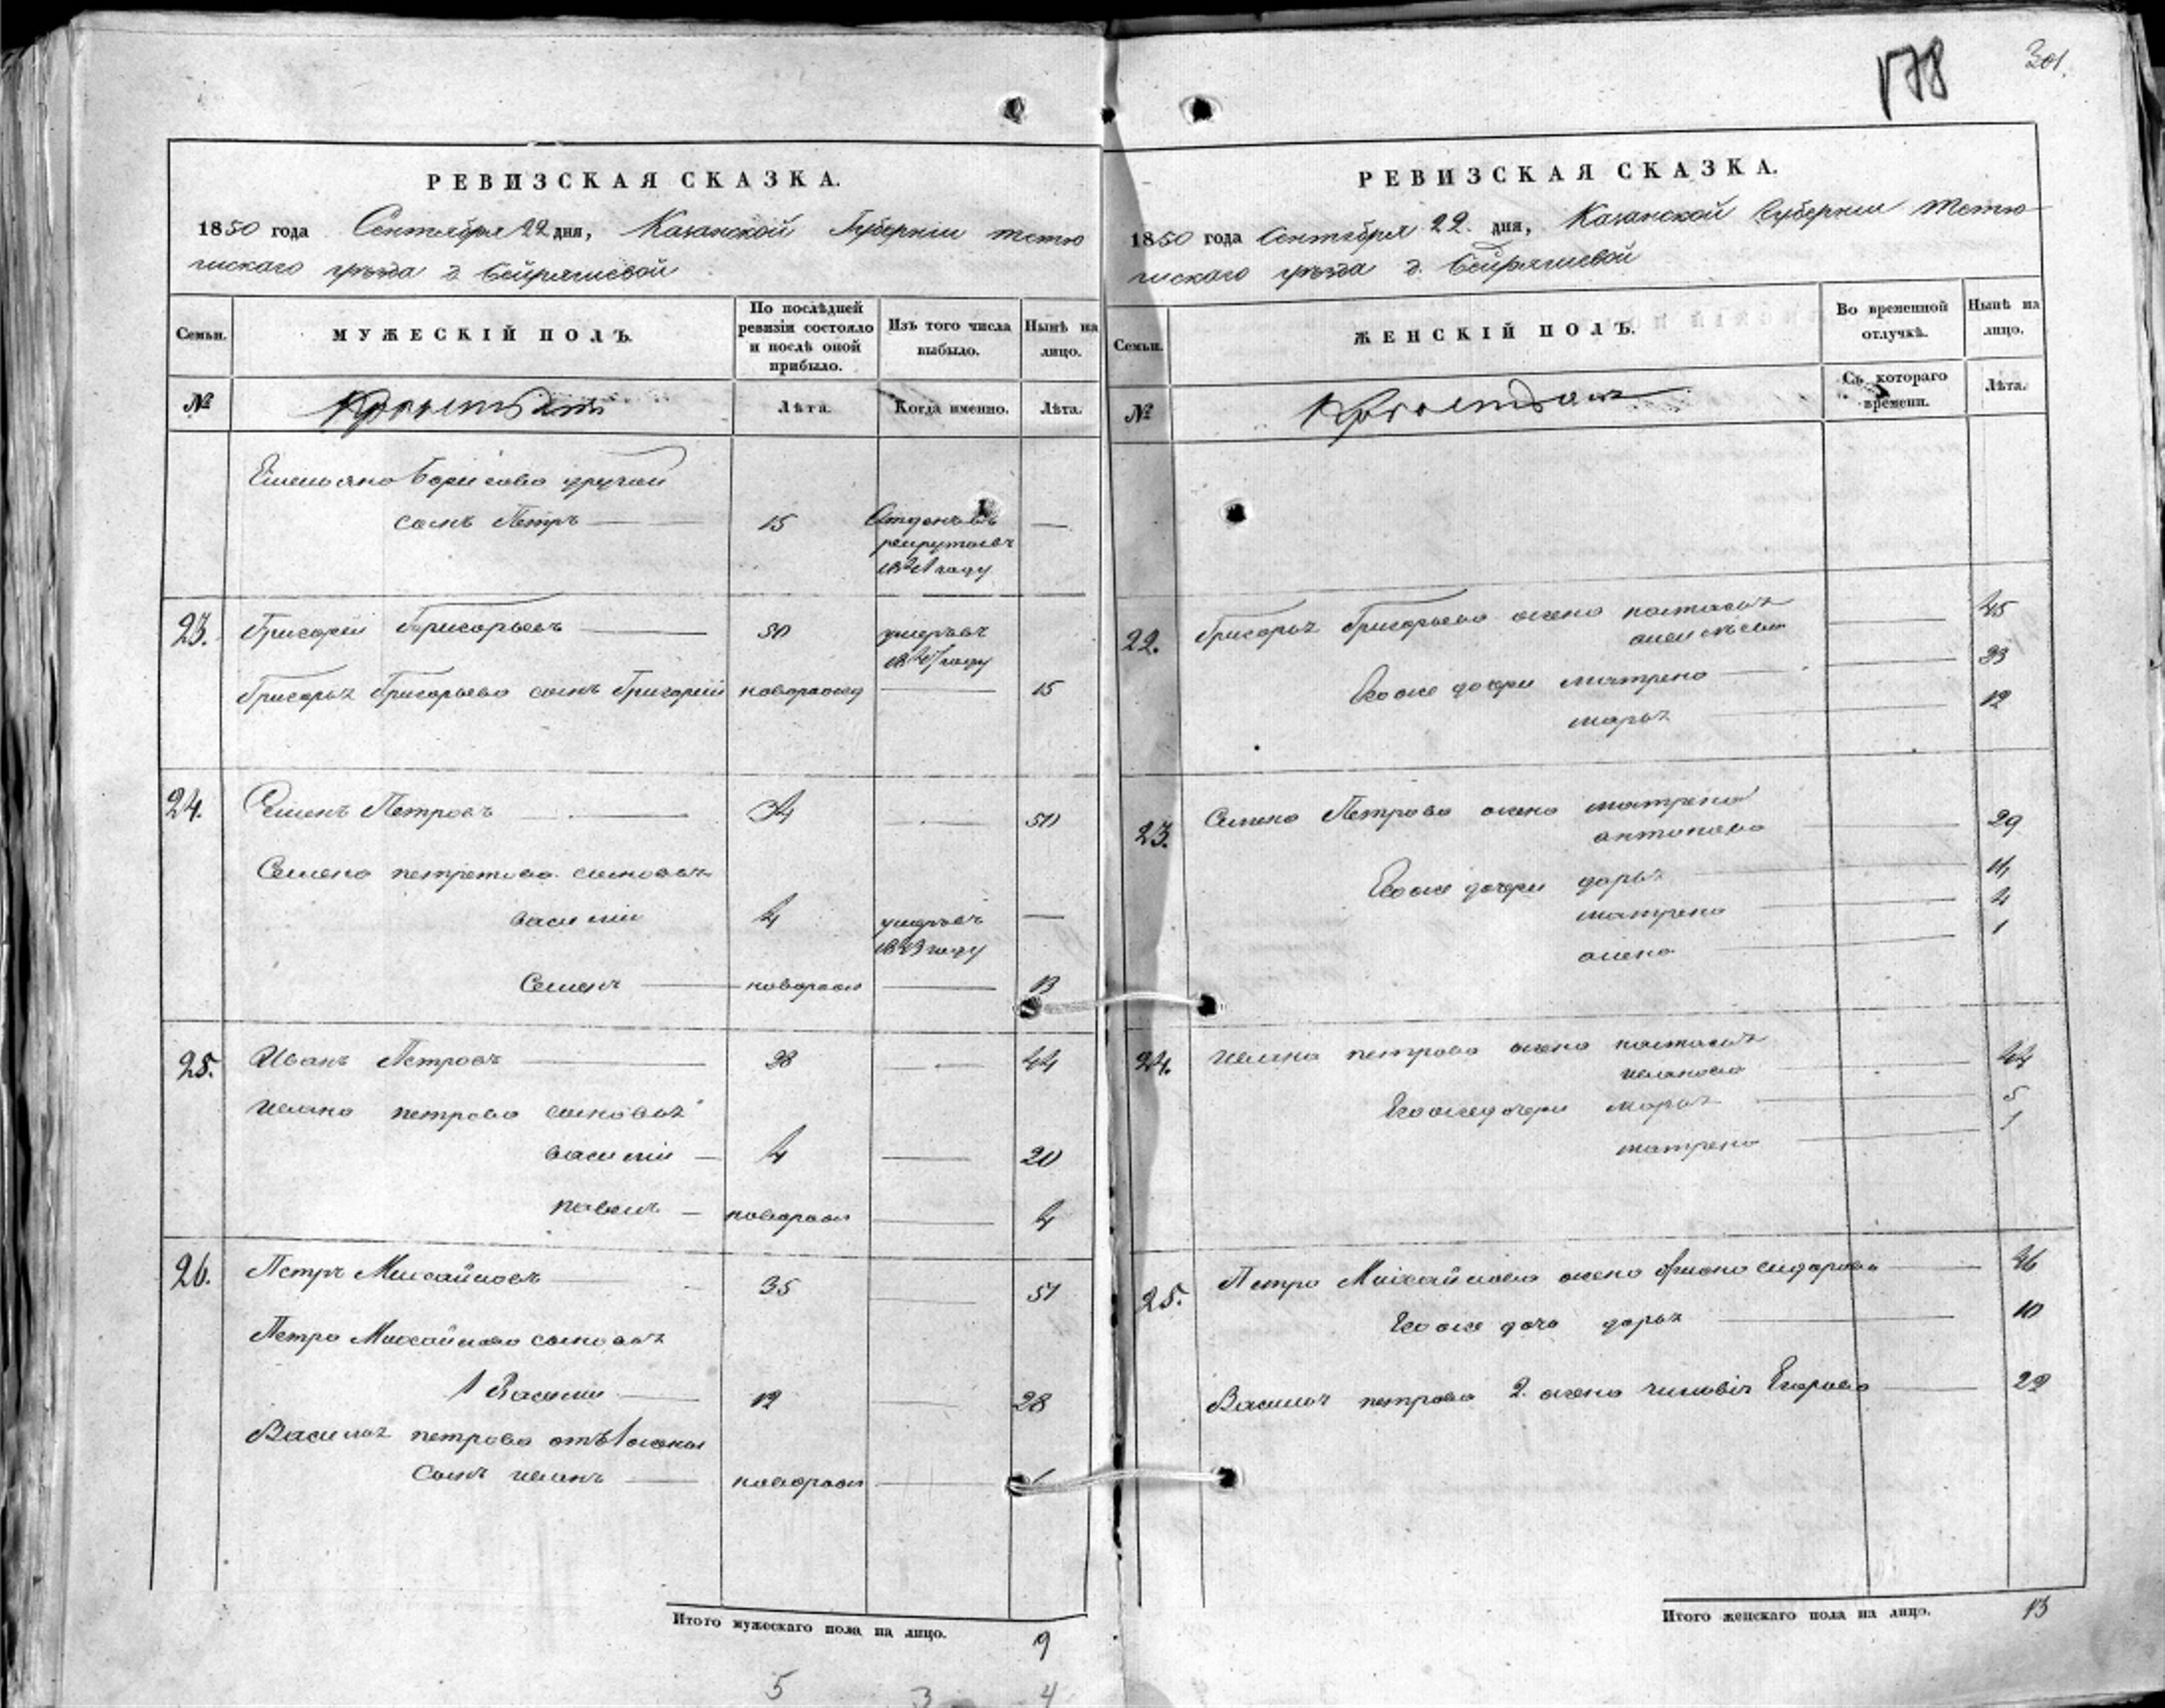 178
301.
РЕВИЗСКАЯ СКАЗКА.
1850 года Сентября 22 дня, Казанской Губерніи Тетю
шскаго уѣзда д.
Семьи.
МУЖЕСКІЙ ПОЛЪ.
По послѣдней ревизіи состояло и послѣ оной прибыло.
Изъ того числа выбыло.
Нынѣ на лицо.
№
Лѣта.
Когда именно.
Лѣта.
Емельяна Борисова другой
сынъ Петръ 15 Отданъ въ —
рекруты въ
году
23. Григорій Григорьевъ 50 умеръ въ
году
Григорья Григорьева сынъ Григорій новорожд 15
24. Семенъ Петровъ 34 50
Семена сыновья
василій 4 умеръ въ —
году
Семенъ новорож 13
25. Иванъ Петровъ 28 44
ивана петрова сыновья
василій 4 20
павелъ новорож 4
26. Петръ Михайловъ 35 51
Петра Михайлова сыновья
1 Василій 12 28
Василья петрова отъ 1 жены
сынъ иванъ новорож
Итого мужескаго пола на лицо. 9
5 3 4
РЕВИЗСКАЯ СКАЗКА.
1850 года Сентября 22. дня, Казанской Губерніи Тетю
шскаго уѣзда д.
Семьи.
ЖЕНСКІЙ ПОЛЪ.
Во временной отлучкѣ.
Нынѣ на лицо.
№
Съ котораго времени.
Лѣта.
22. Григорья Григорьева жена настасья 45
алексѣева
Его же дочери матрена 23
марья 12
23. Семена Петрова жена матрена
антонова 29
Его же дочери дарья 11
матрена 4
алена 1
24. ивана петрова жена настасья
иванова 44
Его же дочери марья 5
матрена 1
25. Петра Михайлова жена сидорова 46
Его же дочь дарья 10
Василья петрова 2. жена Егорова 22
Итого женскаго пола на лицо. 13